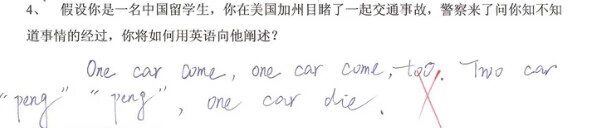 4、 假设你是一名中国留学生，你在美国加州目睹了一起交通事故，警察来了问你知不知
道事情的经过，你将如何用英语向他阐述？
One car come, one car come, too. Two car
“peng” “peng”, one car die.